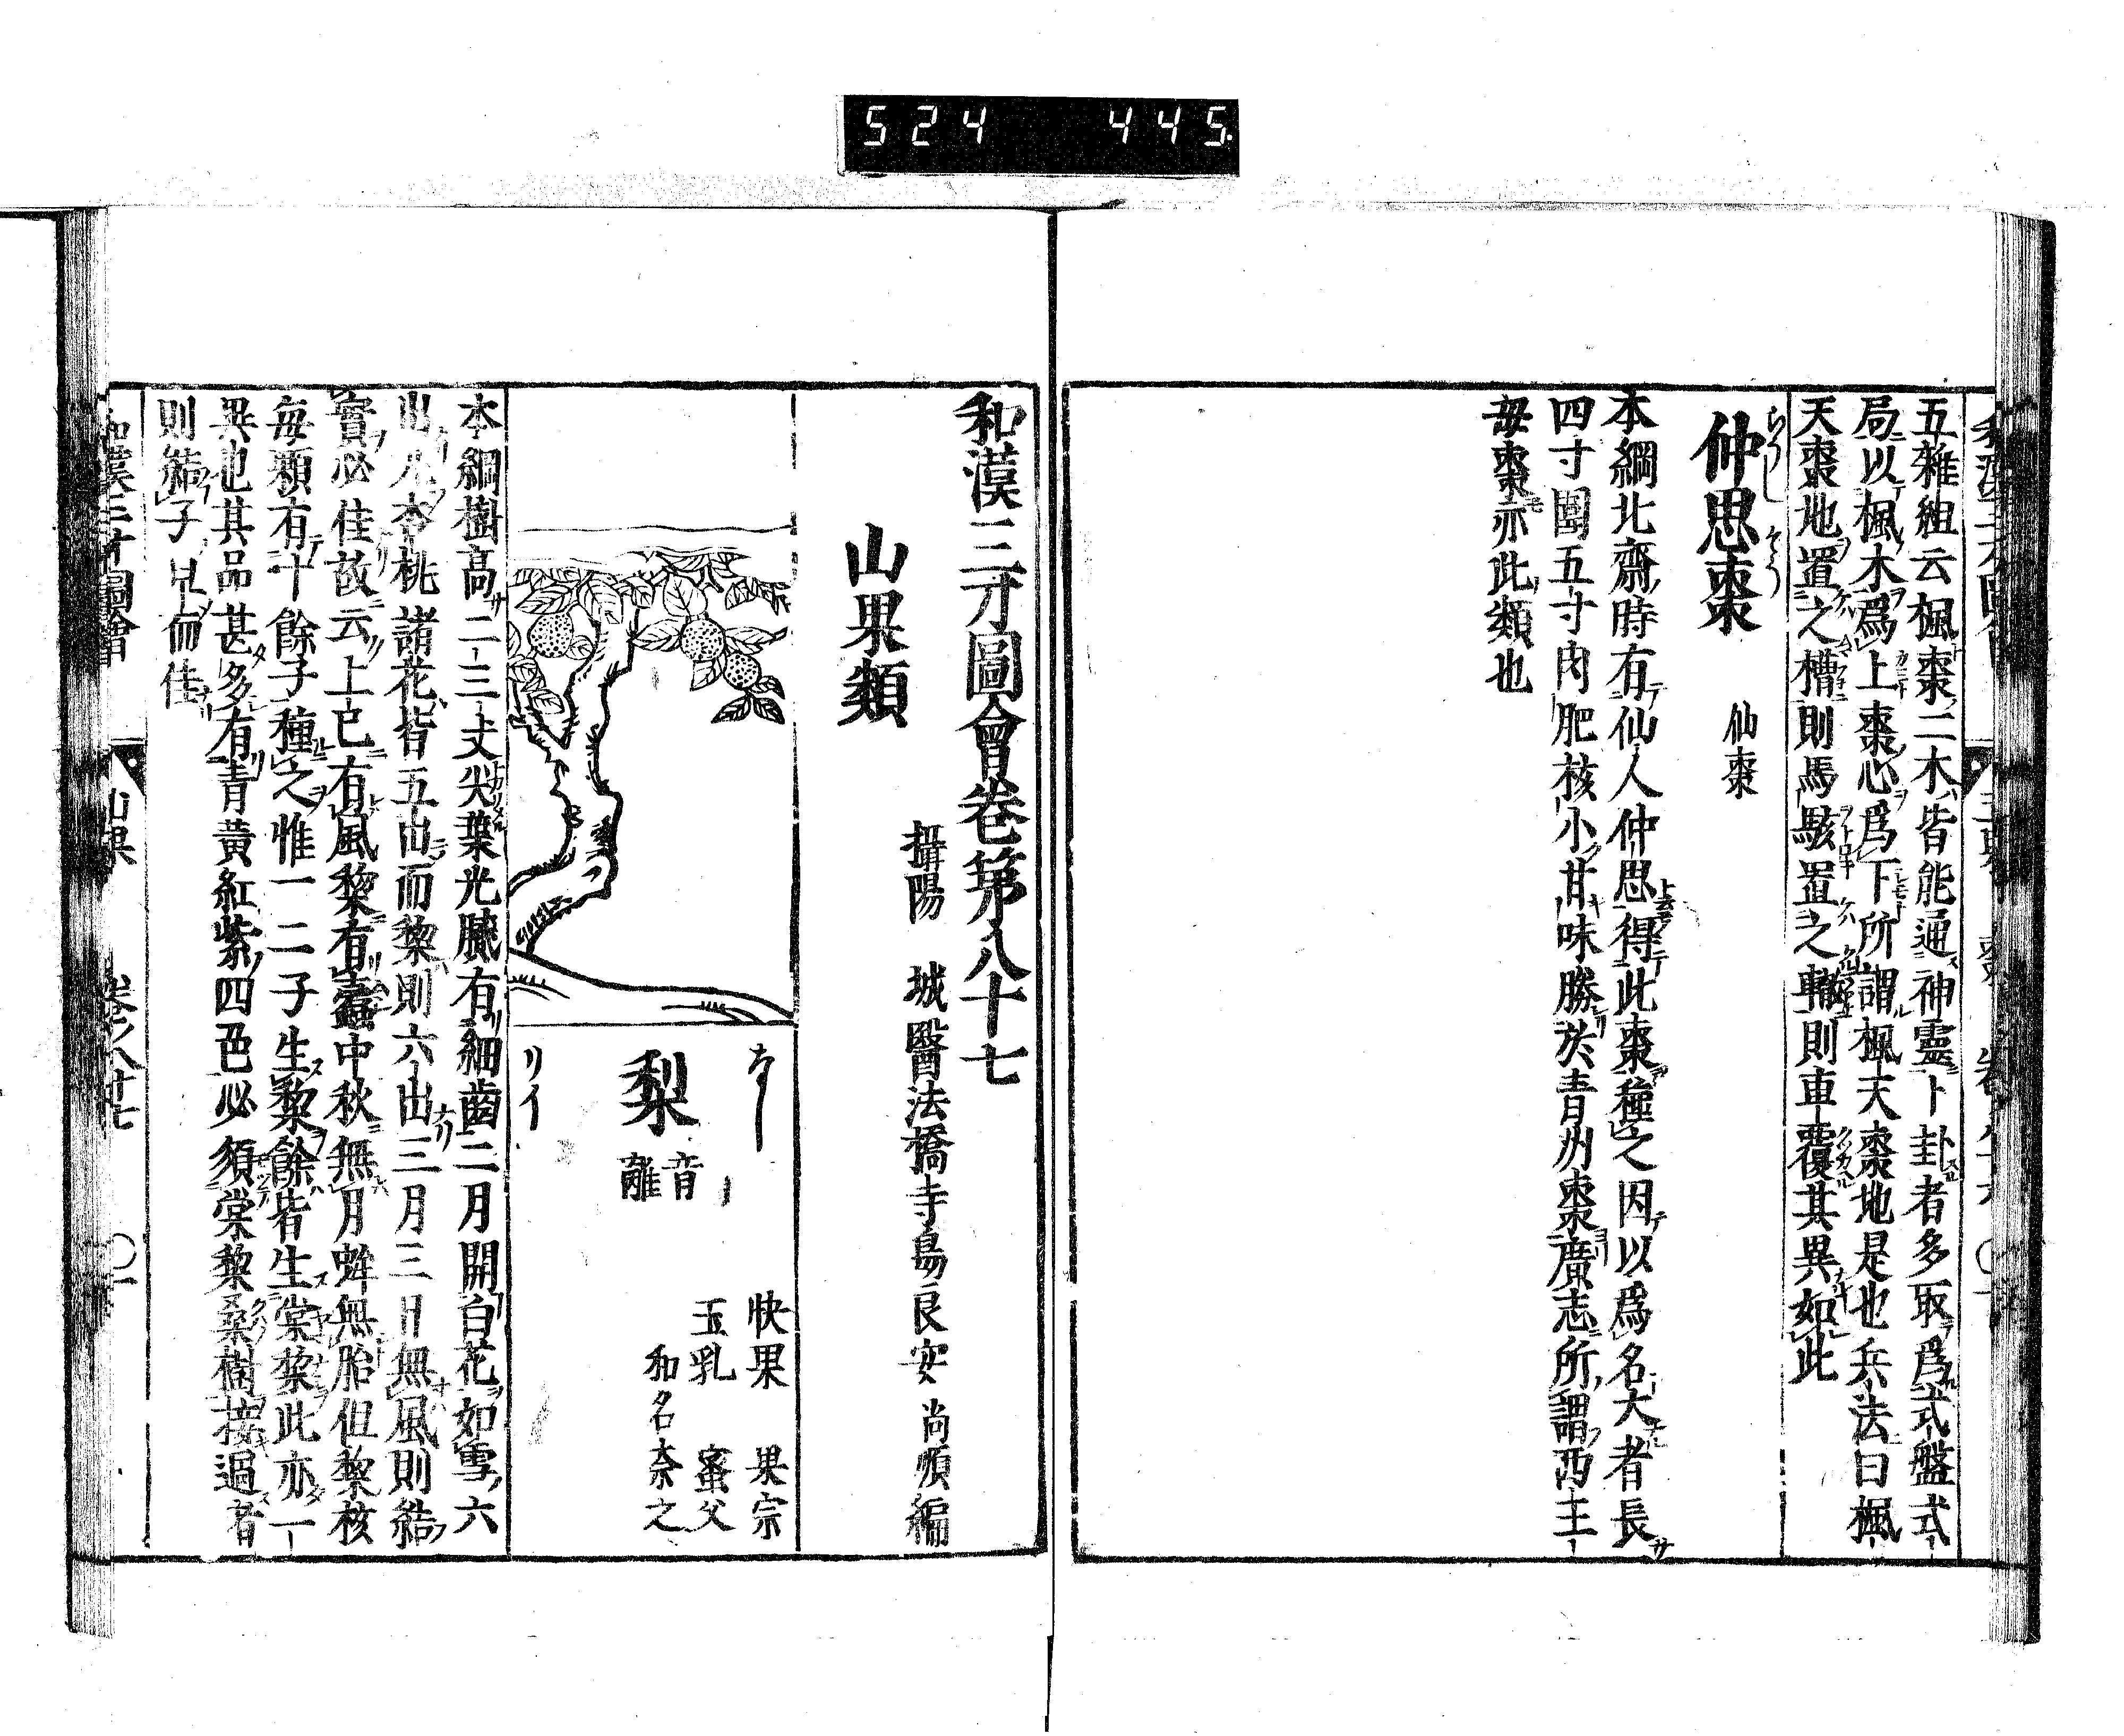 524 445
五雜組云楓棗二木皆能通神靈卜卦者多取爲式盤式
局以楓木爲上棗心爲下所謂楓天棗地是也兵法曰楓
天棗地置之槽則馬駭置之轍則車覆其異如此
仲思棗 仙棗
本綱北齋時有仙人仲思得此棗種之因以爲名大者長
四寸圍五寸肉肥核小甘味勝於青州棗廣志所謂西王
毋棗亦此類也
和漢三才圖會卷第八十七
攝陽 城醫法橋寺島良安尚順編
山果類
なし
梨
音離
リイ
快果 果宗
玉乳 蜜父
和名奈之
本綱樹高二三丈尖葉光膩有細齒二月開白花如雪六
出八杏桃諸花皆五出而棃則六出三月三日無風則結
實必佳故云上巳有風棃有蠧中秋無月蚌無胎但棃核
毎顆有十餘子種之惟一二子生棃餘皆生棠棃此亦一
異也其品甚多有青黃紅紫四色必須棠棃桑樹接過者
則結子早而佳
和漢三才圖會 山果 卷之八十七 〇一